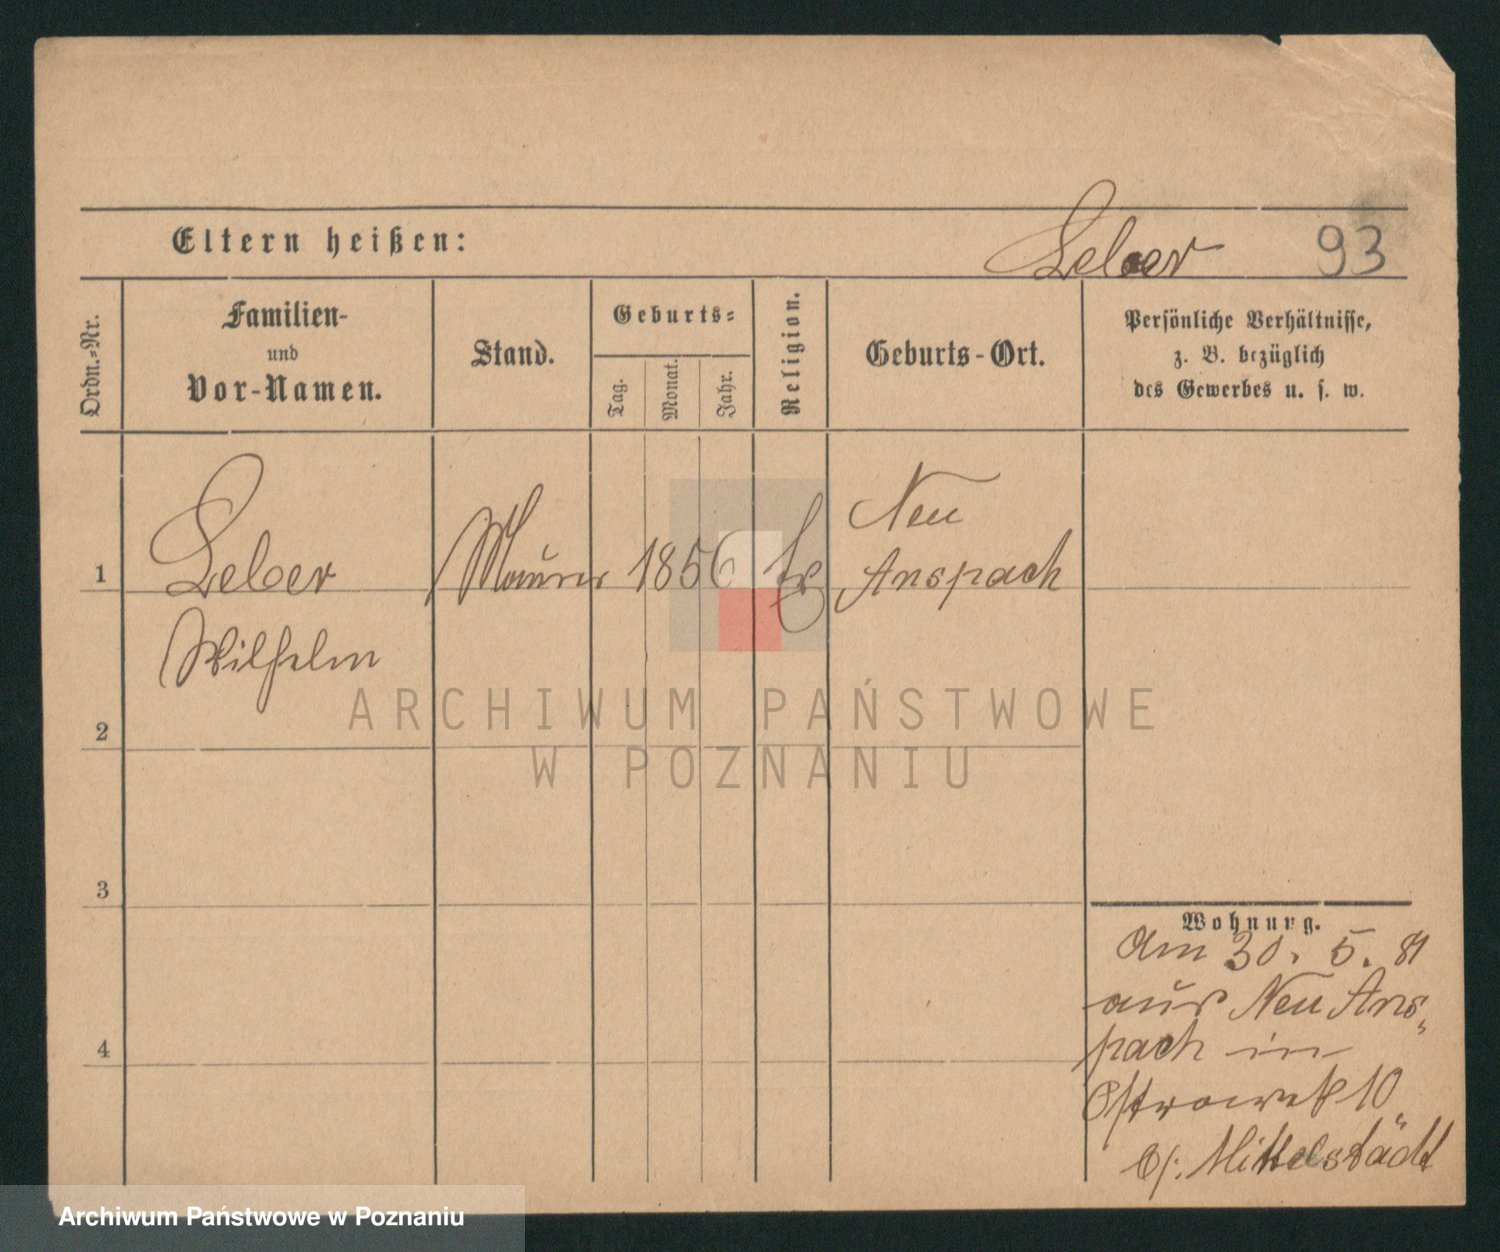 Eltern heißen:
Leber 93
Ordn.-Nr.
Familien-
und
Vor-Namen.
Stand.
Geburts-
Tag.
Monat.
Jahr.
Religion.
Geburts-Ort.
Persönliche Verhältnisse,
z. B. bezüglich
des Gewerbes u. s. w.
1 Leber Maurer 1856 Neu
Anspach
Wilhelm
ARCHIWUM PAŃSTWOWE
W POZNANIU
2
3
4
Wohnung.
Am 30. 5. 81
aus Neu Ans„
pach in
Ostrowek 10
b/. Mittelstädt
Archiwum Państwowe w Poznaniu